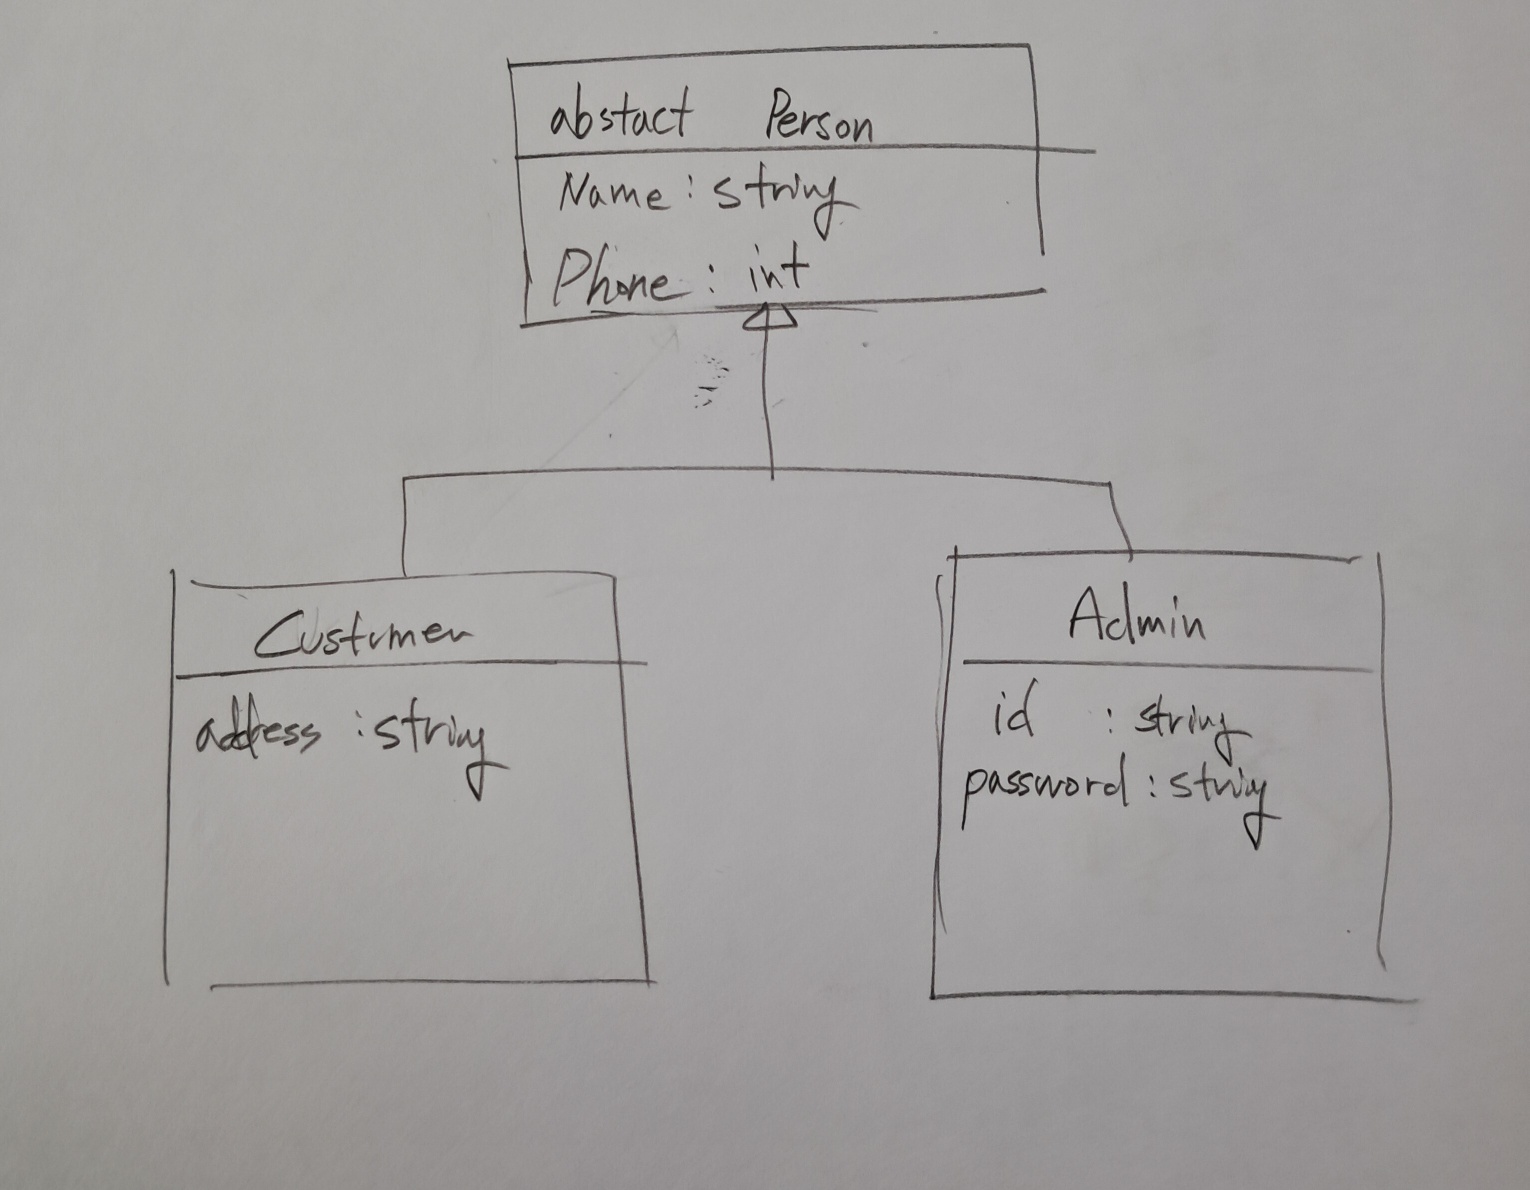 abstact Person
Name : string
Phone : int
Custumer
address : string
Admin
id : string
password : string